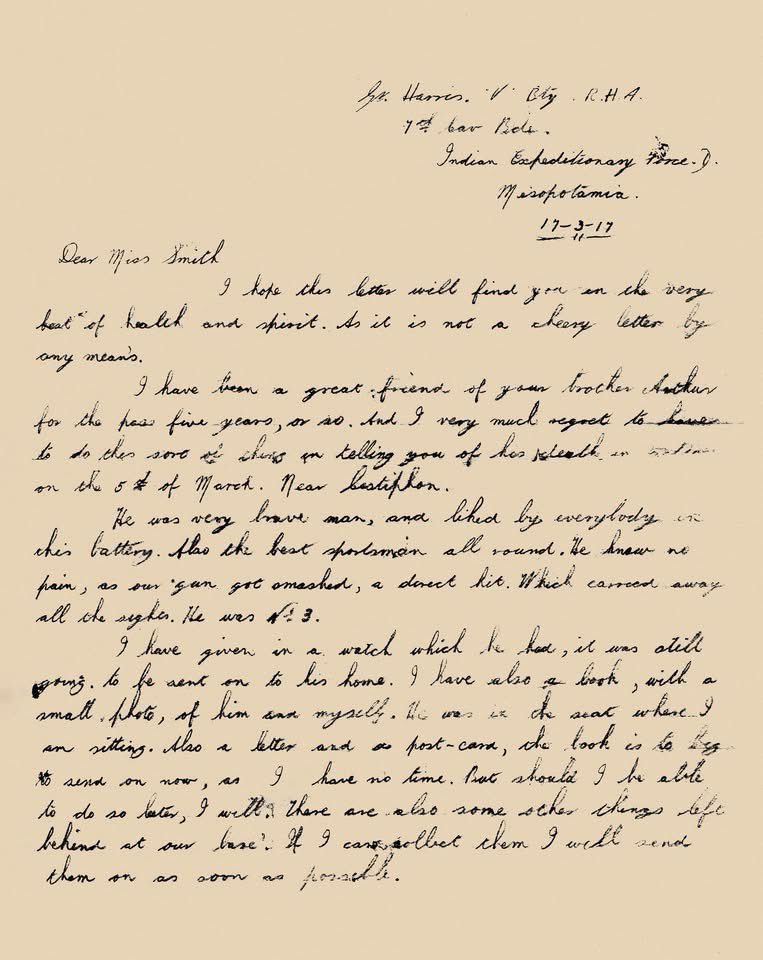 Gr. Harris. 'V' Bty. R.H.A.
7th Cav Bde.
Indian Expeditionary Force. D.
Mesopotamia.
17-3-17
Dear Miss Smith
I hope this letter will find you in the very
best of health and spirit. As it is not a cheery letter by
any means.
I have been a great friend of your brother Arthur
for the pass five years, or so. And I very much regret to have
to do this sort of thing in telling you of his death in
on the 5th of March. Near Cestiphon.
He was very brave man, and liked by everybody in
this battery. Also the best sportsman all round. He knew no
pain, as our gun got smashed, a direct hit. Which carried away
all the sights. He was No 3.
I have given in a watch which he had, it was still
going. to be sent on to his home. I have also a book, with a
small photo, of him and myself. He was in the seat where I
am sitting. Also a letter and a post-card, the book is to big
to send on now, as I have no time. But should I be able
to do so later, I will. There are also some other things left
behind at our base. If I can collect them I will send
them on as soon as possible.